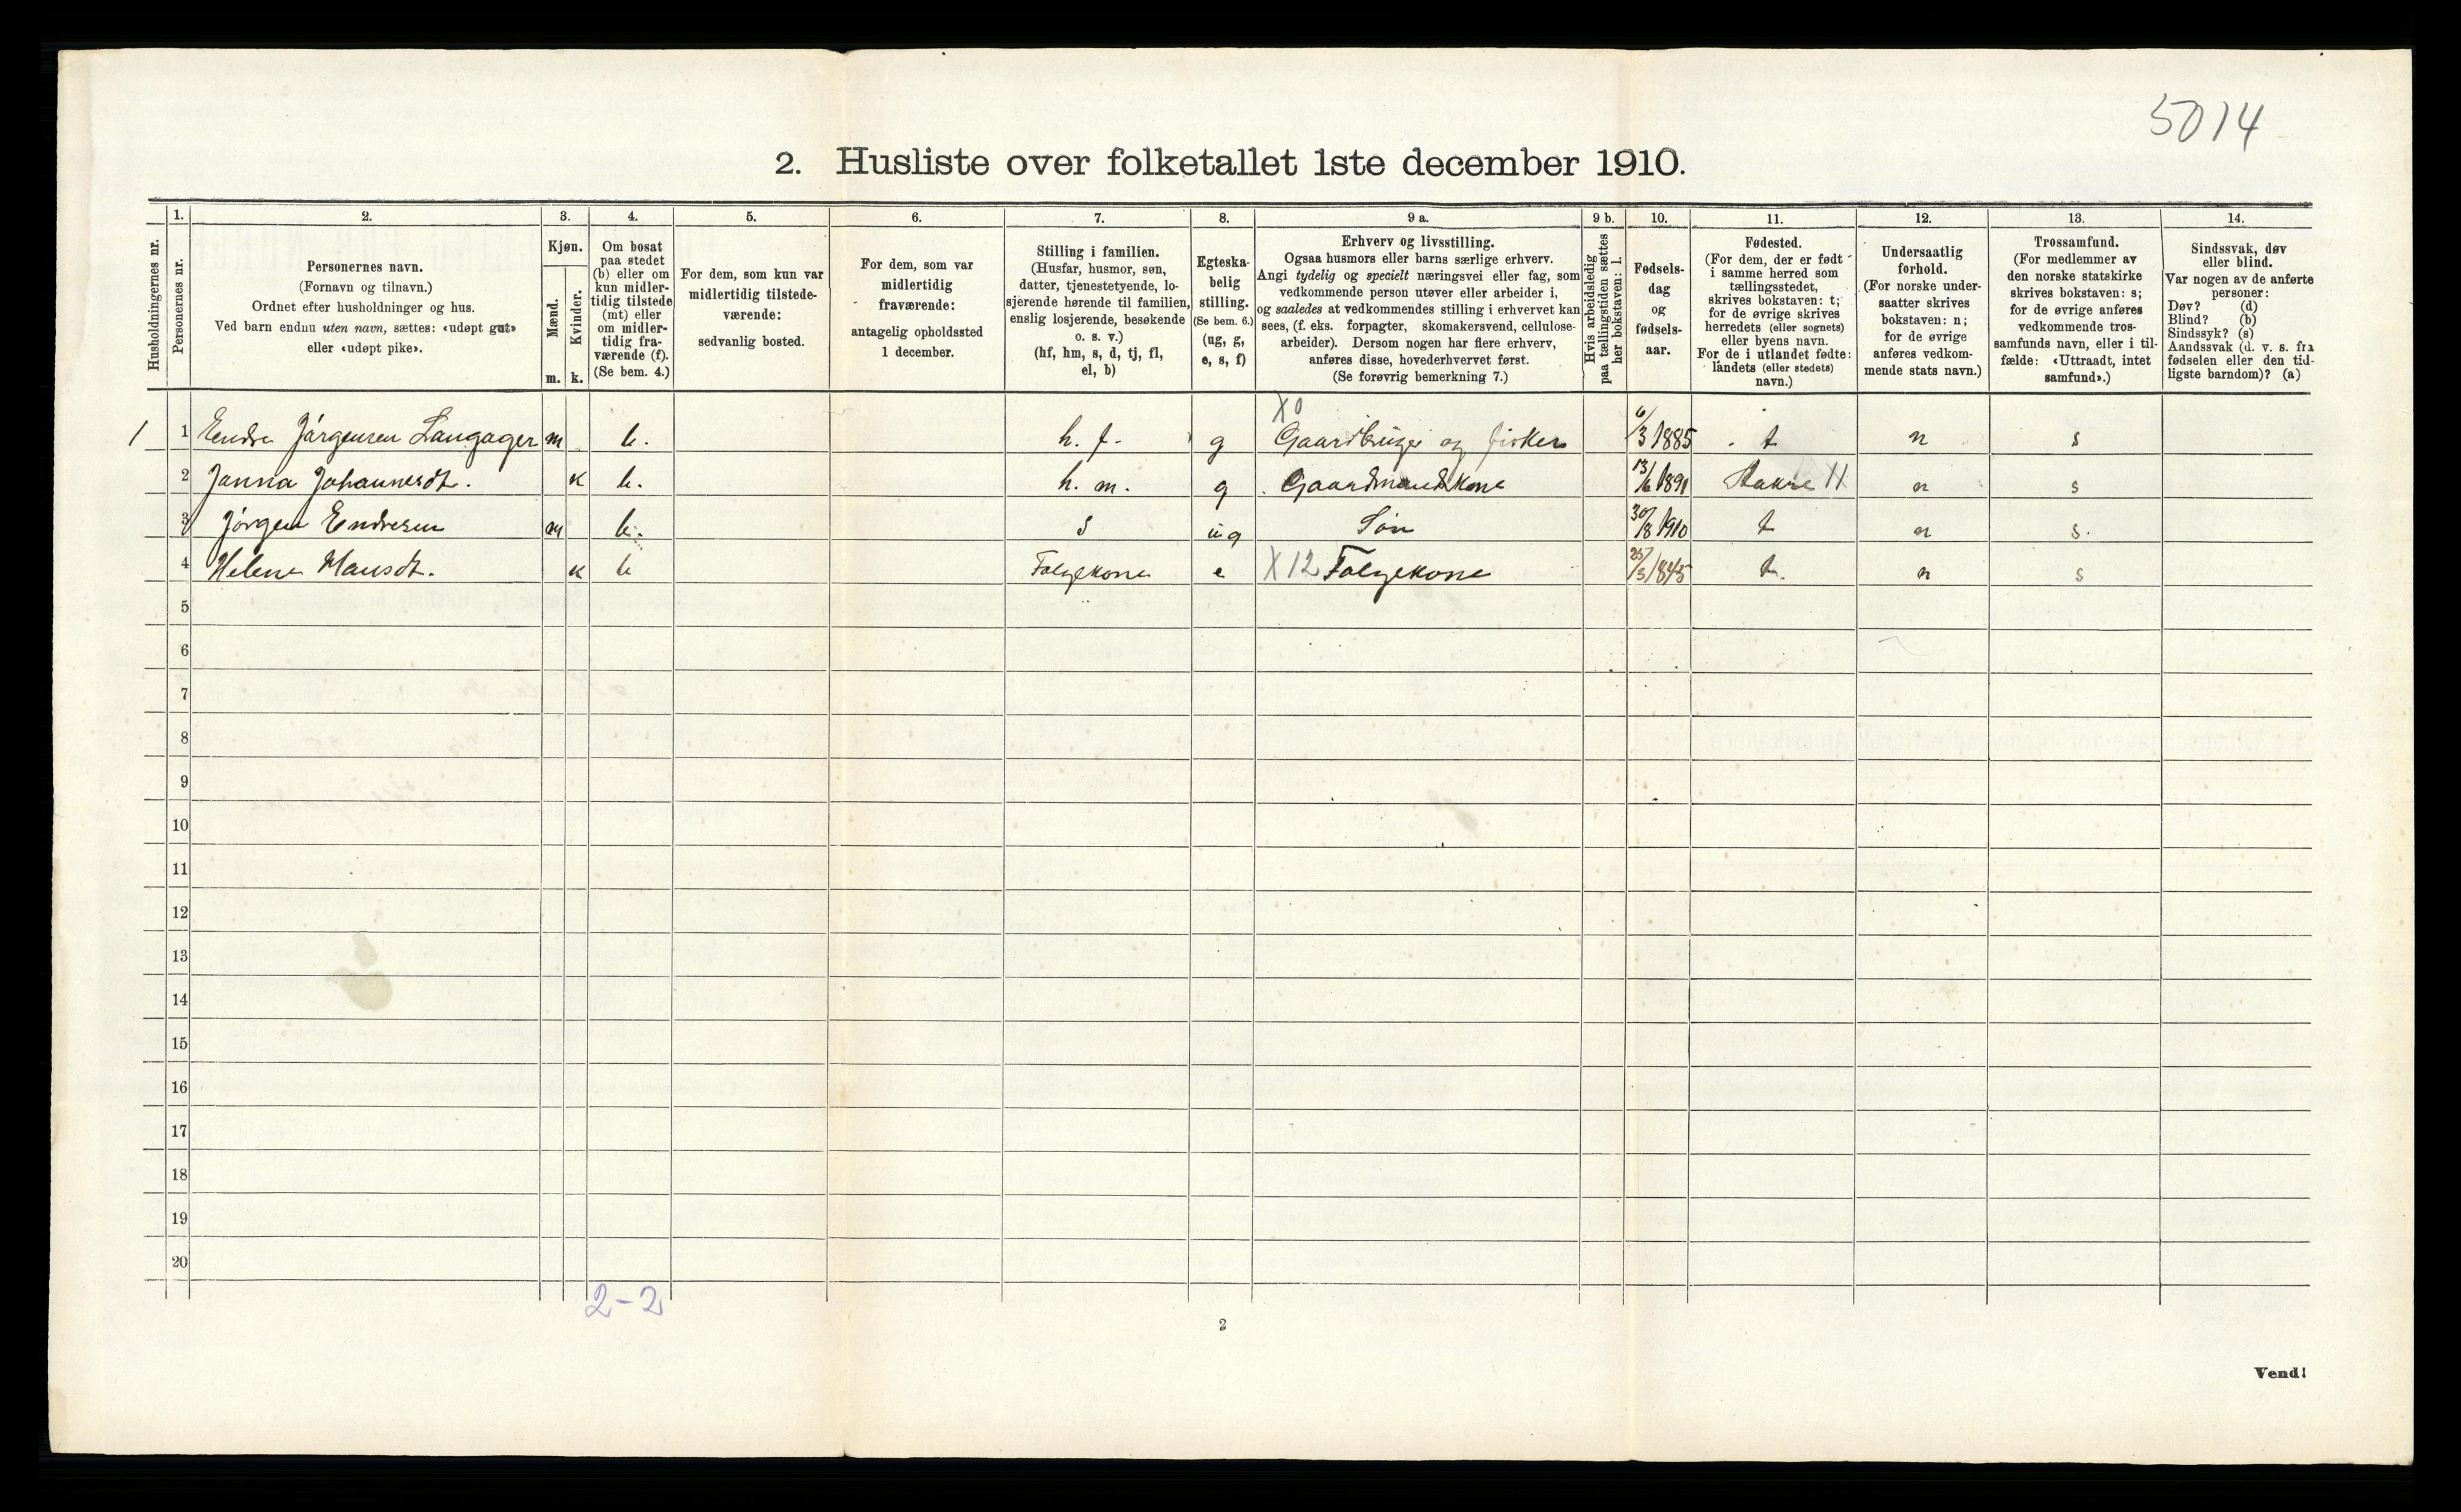 5014
2. Husliste over folketallet 1ste december 1910.
Husholdningernes nr.
1.
Personernes nr.
2.
Personernes navn.
(Fornavn og tilnavn.)
Ordnet efter husholdninger og hus.
Ved barn endnu uten navn, sættes: «udøpt gut»
eller «udøpt pike».
3.
Kjøn.
Mænd.
Kvinder.
m. k.
4.
Om bosat
paa stedet
(b) eller om
kun midler-
tidig tilstede
(mt) eller
om midler-
tidig fra-
værende (f).
(Se bem. 4.)
5.
For dem, som kun var
midlertidig tilstede-
værende:
sedvanlig bosted.
6.
For dem, som var
midlertidig
fraværende:
antagelig opholdssted
1 december.
7.
Stilling i familien.
(Husfar, husmor, søn,
datter, tjenestetyende, lo-
sjerende hørende til familien,
enslig losjerende, besøkende
o. s. v.)
(hf, hm, s, d, tj, fl,
el, b)
8.
Egteska-
belig
stilling.
(Se bem. 6.)
(ug, g,
e, s, f)
9 a.
Erhverv og livsstilling.
Ogsaa husmors eller barns særlige erhverv.
Angi tydelig og specielt næringsvei eller fag, som
vedkommende person utøver eller arbeider i,
og saaledes at vedkommendes stilling i erhvervet kan
sees, (f. eks. forpagter, skomakersvend, cellulose-
arbeider). Dersom nogen har flere erhverv,
anføres disse, hovederhvervet først.
(Se forøvrig bemerkning 7.)
9 b.
Hvis arbeidsledig
paa tællingstiden sættes
her bokstaven: l.
10.
Fødsels-
dag
og
fødsels-
aar.
11.
Fødested.
(For dem, der er født
i samme herred som
tællingsstedet,
skrives bokstaven: t;
for de øvrige skrives
herredets (eller sognets)
eller byens navn.
For de i utlandet fødte:
landets (eller stedets)
navn.)
12.
Undersaatlig
forhold.
(For norske under-
saatter skrives
bokstaven: n;
for de øvrige
anføres vedkom-
mende stats navn.)
13.
Trossamfund.
(For medlemmer av
den norske statskirke
skrives bokstaven: s;
for de øvrige anføres
vedkommende tros-
samfunds navn, eller i til-
fælde: «Uttraadt, intet
samfund».)
14.
Sindssvak, døv
eller blind.
Var nogen av de anførte
personer:
Døv? (d)
Blind? (b)
Sindssyk? (s)
Aandssvak (d. v. s. fra
fødselen eller den tid-
ligste barndom)? (a)
X0
1 1 Endre Jørgensen Langager m b. h. f. g Gaardbruger og fisker 6/3 1885 t n s
2 Janna Johannesdt. k b. h. m. g Gaardmandskone 13/6 1891 n s
3 Jørgen Endresen m b. s ug Søn 30/8 1910 t n s.
4 Helene Hansdt. k b Folgekone e X12 Folgekone 25/3 1845 t. n s
5
6
7
8
9
10
11
12
13
14
15
16
17
18
19
20
2-2
2
Vend!